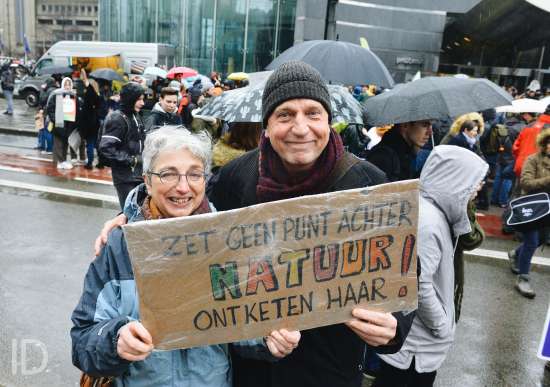 ZET GEEN PUNT ACHTER
NATUUR!
ONTKETEN HAAR!
ID.